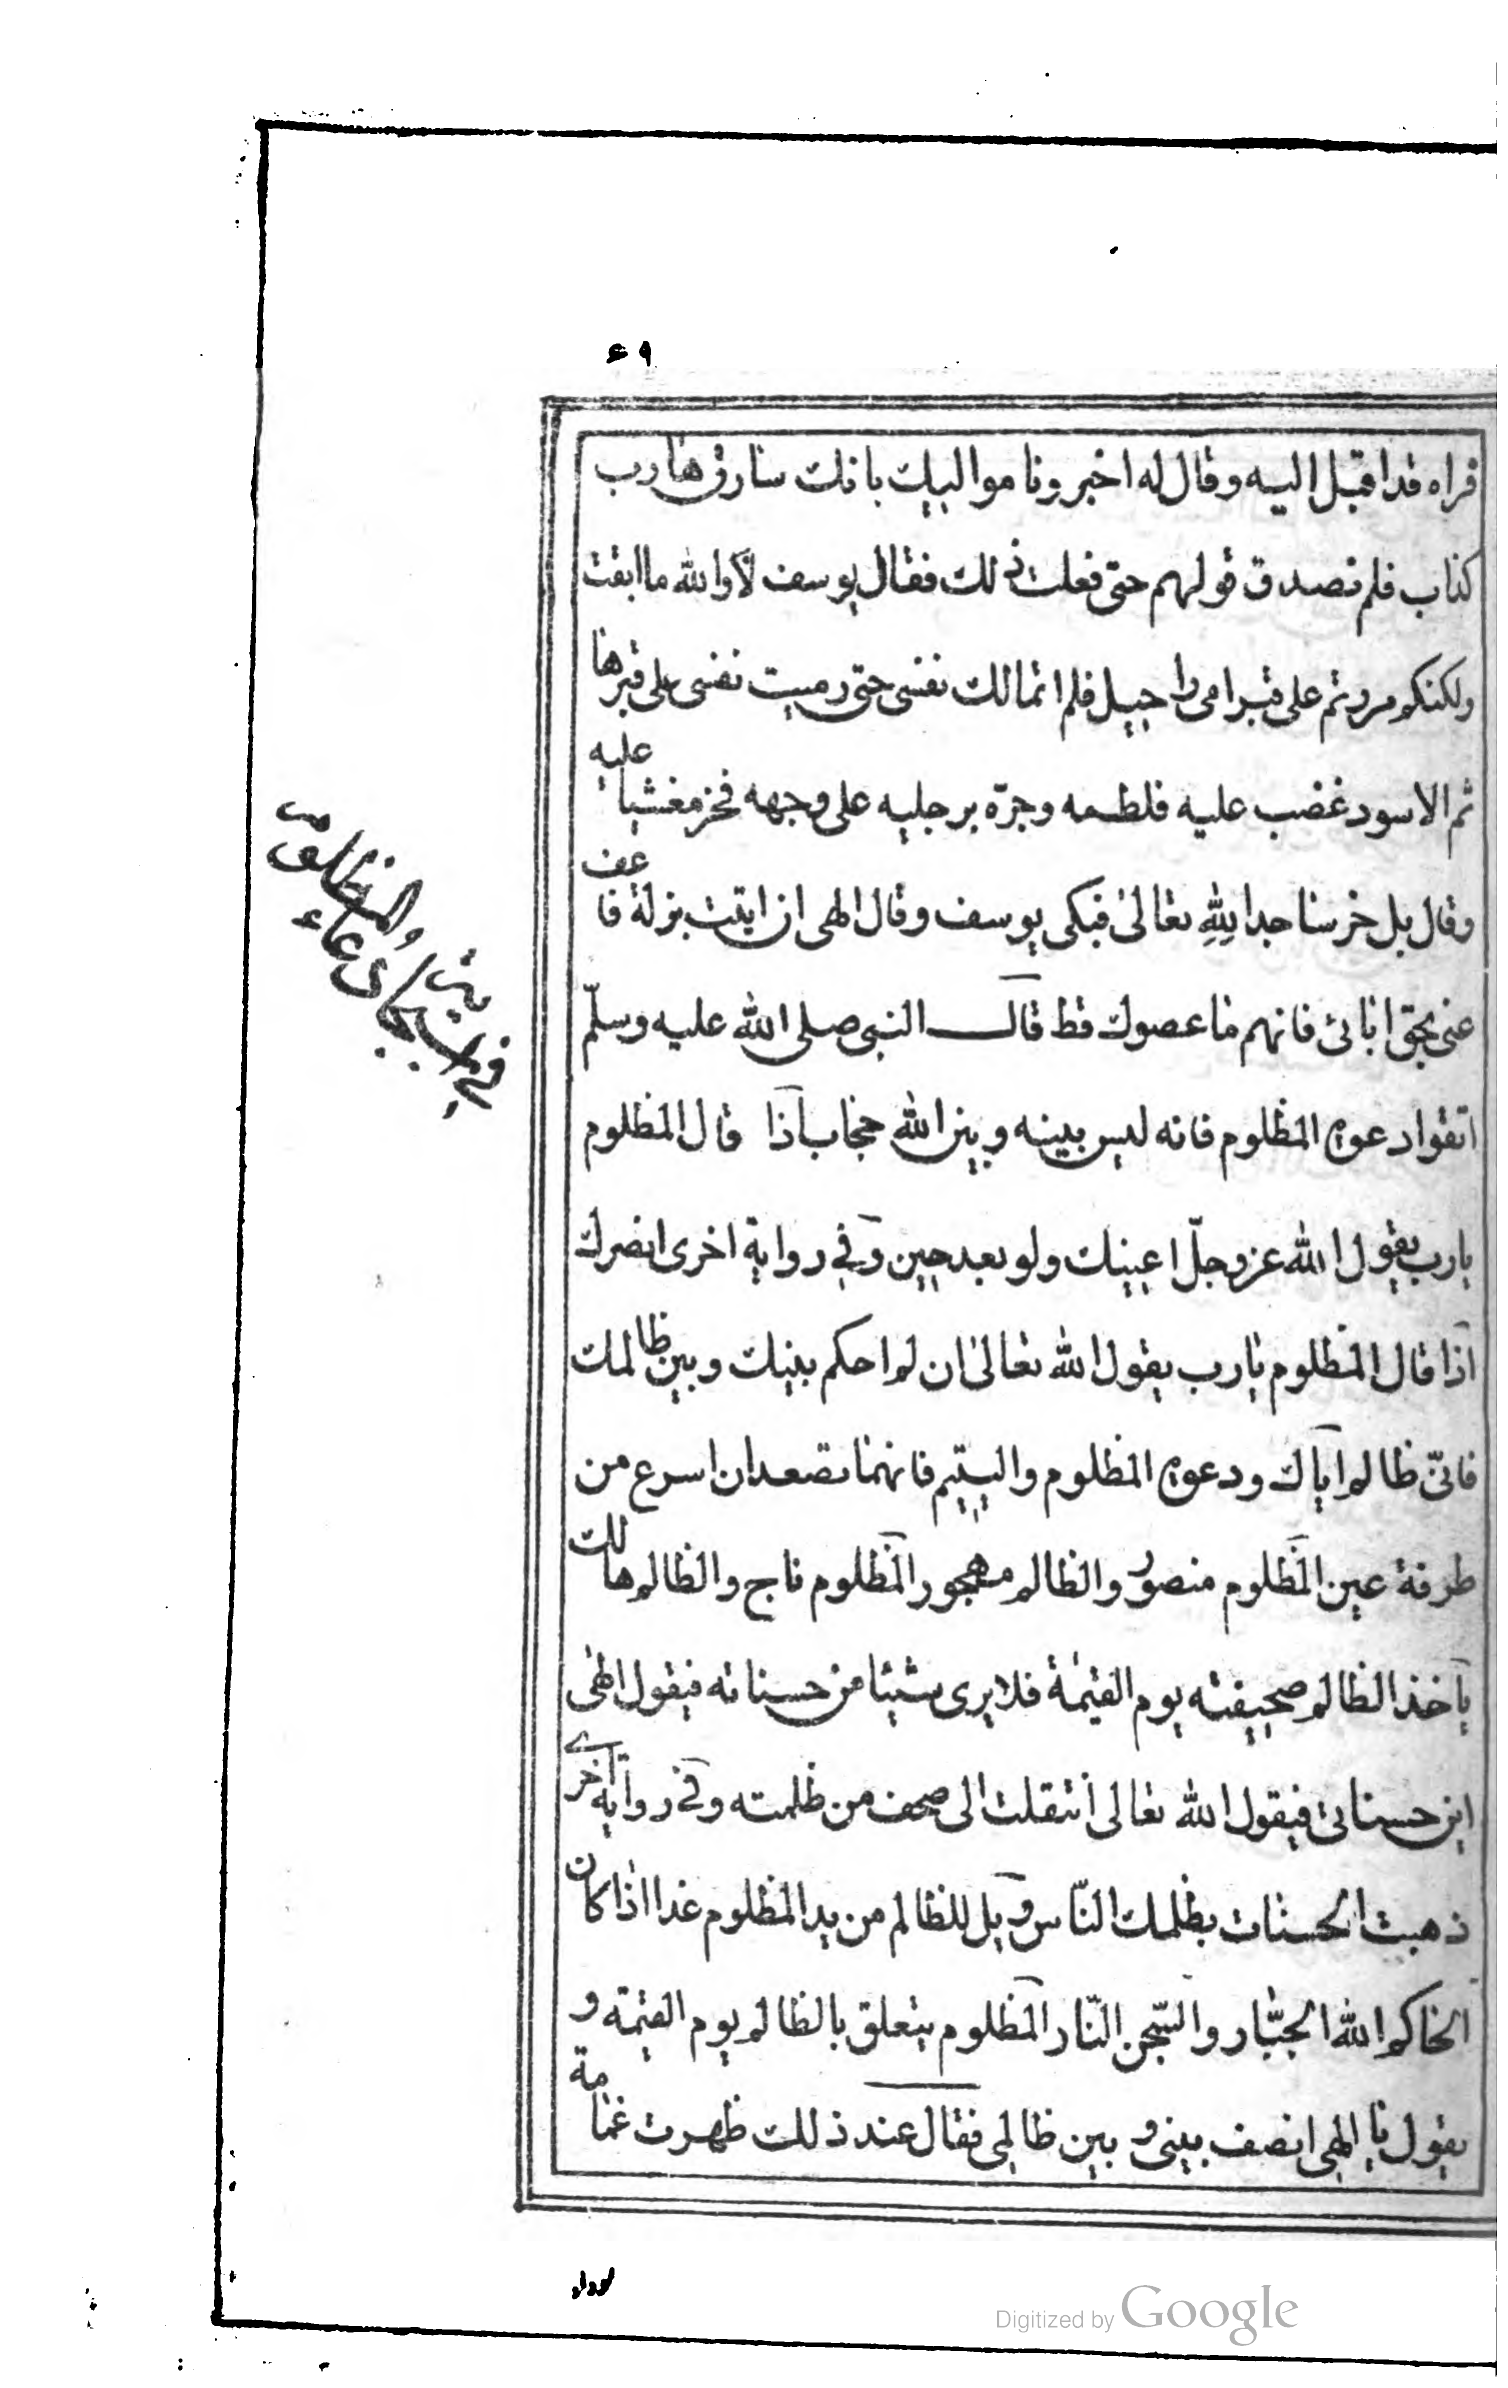 ٤٩
فراه قد اقبل اليه وقال له اخبرونا مواليك بانك سارق هارب
كذاب فلم نصدق قولهم حتى فعلت ذلك فقال يوسف لا والله ما ابقت
ولكنكم مررتم على قبر امى راحيل فلم اتمالك نفسى حتى رميت نفسى على قبرها
ثم الاسود غضب عليه فلطمه وجرّه برجليه على وجهه فخر مغشيا عليه
وقال بل خر ساجدا لله تعالى فبكى يوسف وقال الهى ان ابقت بزلة فاعف
عنى بحق ابائى فانهم ما عصوك قط قال النبى صلى الله عليه وسلّم
اتقوا دعوة المظلوم فانه ليس بينه وبين الله حجاب اذا قال المظلوم
يارب يقول الله عز وجلّ اعينك ولو بعد حين وفى رواية اخرى انصرك
اذا قال المظلوم يارب يقول الله تعالى ان لم احكم بينك وبين ظالمك
فانّى ظالم اياك ودعوة المظلوم واليتيم فانهما تصعدان اسرع من
طرفة عين المظلوم منصور والظالم مهجور المظلوم ناج والظالم هالك
يأخذ الظالم صحيفته يوم القيمة فلا يرى شيئا من حسناته فيقول الهى
اين حسناتى فيقول الله تعالى انتقلت الى صحف من ظلمته وفى رواية اخرى
ذهبت الحسنات بظلمك النّاس ويل للظالم من يد المظلوم غدا اذا كان
الحاكم الله الجبّار والسّجن النّار المظلوم يتعلق بالظالم يوم القيمة و
يقول يا الهى انصف بينى وبين ظالمى فقال عند ذلك ظهرت غمامة
والمظلومين
Digitized by Google